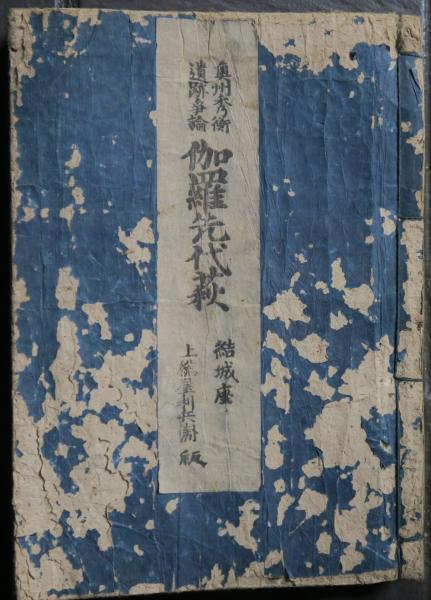 奥州秀衡
遺跡爭論
伽羅先代萩
結城座
上総屋利兵衛 版